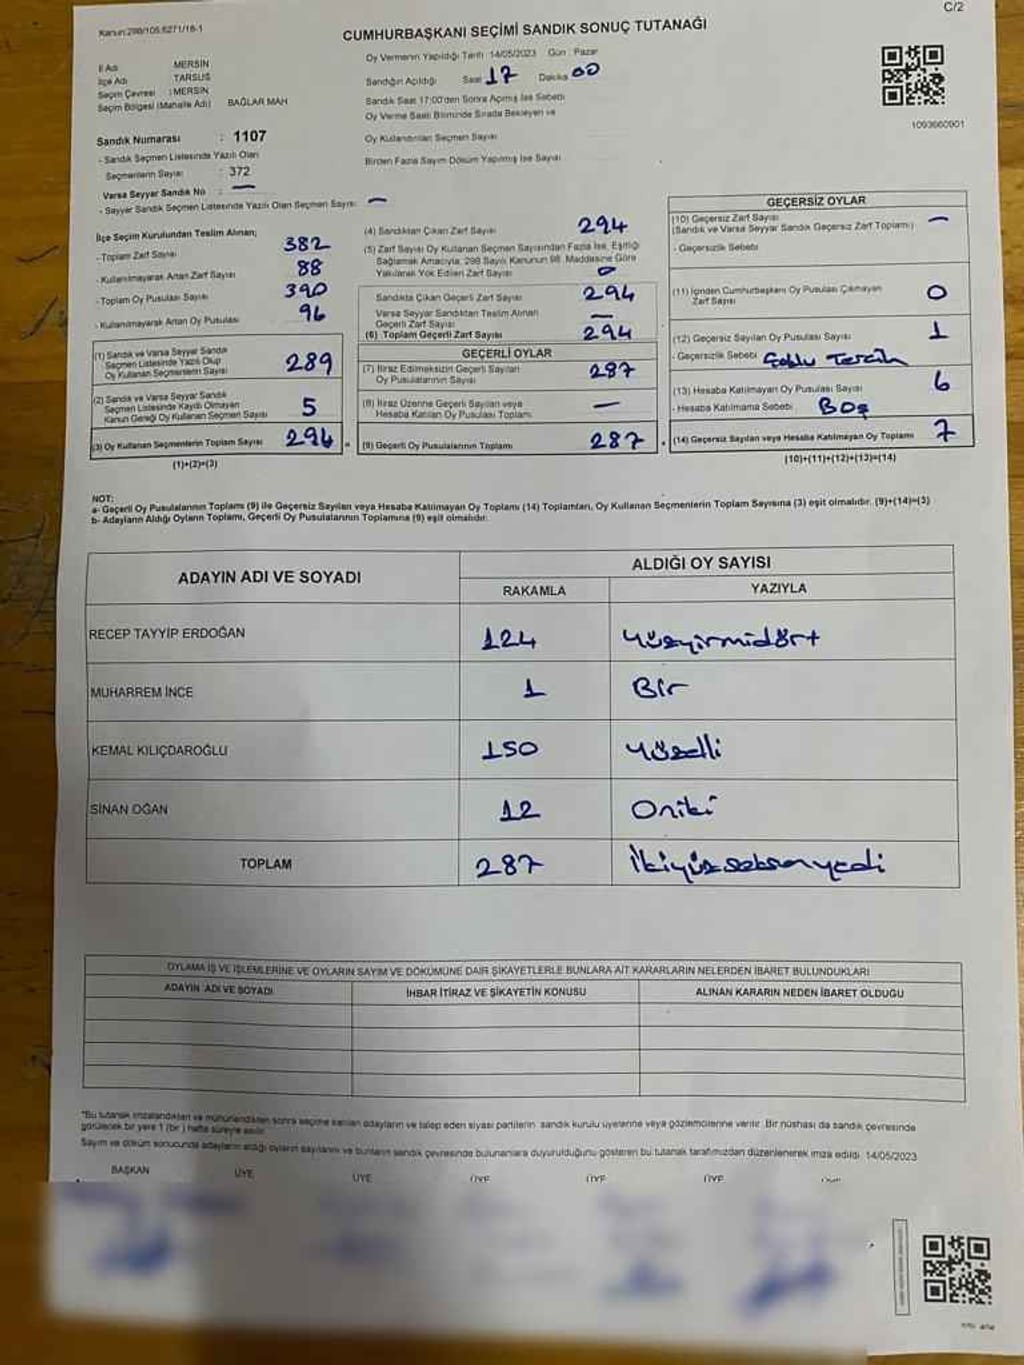 Kanun:298/105,6271/16-1
C/2
CUMHURBAŞKANI SEÇİMİ SANDIK SONUÇ TUTANAĞI
İl Adı MERSİN
İlçe Adı TARSUS
Seçim Çevresi : MERSİN
Seçim Bölgesi (Mahalle Adı) BAĞLAR MAH
Oy Vermenin Yapıldığı Tarih 14/05/2023 Gün : Pazar
Sandığın Açıldığı Saat 17 Dakika 00
Sandık Saat 17:00'den Sonra Açılmış İse Sebebi
Oy Verme Saati Bitiminde Sırada Bekleyen ve
Oy Kullandırılan Seçmen Sayısı
Birden Fazla Sayım Döküm Yapılmış İse Sayısı
1093660901
Sandık Numarası : 1107
- Sandık Seçmen Listesinde Yazılı Olan
Seçmenlerin Sayısı : 372
Varsa Seyyar Sandık No : —
- Seyyar Sandık Seçmen Listesinde Yazılı Olan Seçmen Sayısı —
İlçe Seçim Kurulundan Teslim Alınan;
-Toplam Zarf Sayısı 382
-Kullanılmayarak Artan Zarf Sayısı 88
-Toplam Oy Pusulası Sayısı 390
- Kullanılmayarak Artan Oy Pusulası 96
(1) Sandık ve Varsa Seyyar Sandık
Seçmen Listesinde Yazılı Olup
Oy Kullanan Seçmenlerin Sayısı 289
(2) Sandık ve Varsa Seyyar Sandık
Seçmen Listesinde Kaydı Olmayan
Kanun Gereği Oy Kullanan Seçmen Sayısı 5
(3) Oy Kullanan Seçmenlerin Toplam Sayısı 294
(1)+(2)=(3)
(4) Sandıktan Çıkan Zarf Sayısı 294
(5) Zarf Sayısı Oy Kullanan Seçmen Sayısından Fazla İse, Eşitliği
Sağlamak Amacıyla, 298 Sayılı Kanunun 98. Maddesine Göre
Yakılarak Yok Edilen Zarf Sayısı 0
Sandıkta Çıkan Geçerli Zarf Sayısı 294
Varsa Seyyar Sandıktan Teslim Alınan
Geçerli Zarf Sayısı —
(6) Toplam Geçerli Zarf Sayısı 294
GEÇERLİ OYLAR
(7) İtiraz Edilmeksizin Geçerli Sayılan
Oy Pusulalarının Sayısı 287
(8) İtiraz Üzerine Geçerli Sayılan veya
Hesaba Katılan Oy Pusulası Toplamı —
(9) Geçerli Oy Pusulalarının Toplamı 287
GEÇERSİZ OYLAR
(10) Geçersiz Zarf Sayısı
(Sandık ve Varsa Seyyar Sandık Geçersiz Zarf Toplamı) —
- Geçersizlik Sebebi
(11) İçinden Cumhurbaşkanı Oy Pusulası Çıkmayan
Zarf Sayısı 0
(12) Geçersiz Sayılan Oy Pusulası Sayısı 1
- Geçersizlik Sebebi Çoklu Tercih
(13) Hesaba Katılmayan Oy Pusulası Sayısı 6
- Hesaba Katılmama Sebebi BOŞ
(14) Geçersiz Sayılan veya Hesaba Katılmayan Oy Toplamı 7
(10)+(11)+(12)+(13)=(14)
NOT:
a- Geçerli Oy Pusulalarının Toplamı (9) ile Geçersiz Sayılan veya Hesaba Katılmayan Oy Toplamı (14) Toplamları, Oy Kullanan Seçmenlerin Toplam Sayısına (3) eşit olmalıdır. (9)+(14)=(3)
b- Adayların Aldığı Oyların Toplamı, Geçerli Oy Pusulalarının Toplamına (9) eşit olmalıdır.
ADAYIN ADI VE SOYADI
ALDIĞI OY SAYISI
RAKAMLA YAZIYLA
RECEP TAYYİP ERDOĞAN 124 Yüzyirmidört
MUHARREM İNCE 1 Bir
KEMAL KILIÇDAROĞLU 150 Yüzelli
SİNAN OĞAN 12 Oniki
TOPLAM 287 İkiyüzseksenyedi
OYLAMA İŞ VE İŞLEMLERİNE VE OYLARIN SAYIM VE DÖKÜMÜNE DAİR ŞİKAYETLERLE BUNLARA AİT KARARLARIN NELERDEN İBARET BULUNDUKLARI
ADAYIN ADI VE SOYADI İHBAR İTİRAZ VE ŞİKAYETİN KONUSU ALINAN KARARIN NEDEN İBARET OLDUĞU
*Bu tutanak imzalandıktan ve mühürlendikten sonra seçime katılan adayların ve talep eden siyasi partilerin sandık kurulu üyelerine veya gözlemcilerine verilir. Bir nüshası da sandık çevresinde
görülecek bir yere 1 (bir) hafta süreyle asılır.
Sayım ve döküm sonucunda adayların aldığı oyların sayılarını ve bunların sandık çevresinde bulunanlara duyurulduğunu gösteren bu tutanak tarafımızdan düzenlenerek imza edildi. 14/05/2023
BAŞKAN ÜYE ÜYE ÜYE ÜYE ÜYE